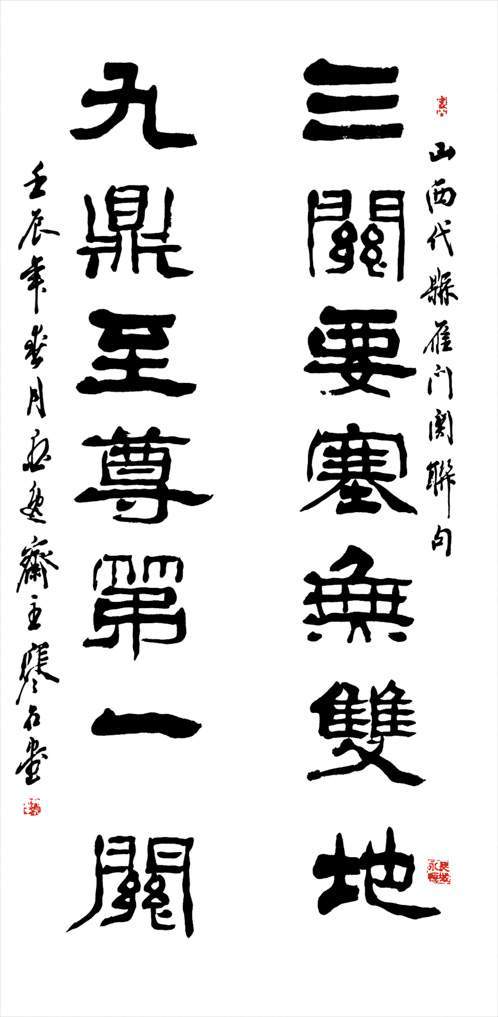 山西代縣雁门関聯句
三關要塞無雙地
九鼎至尊第一關
壬辰年春月齋主寒石書